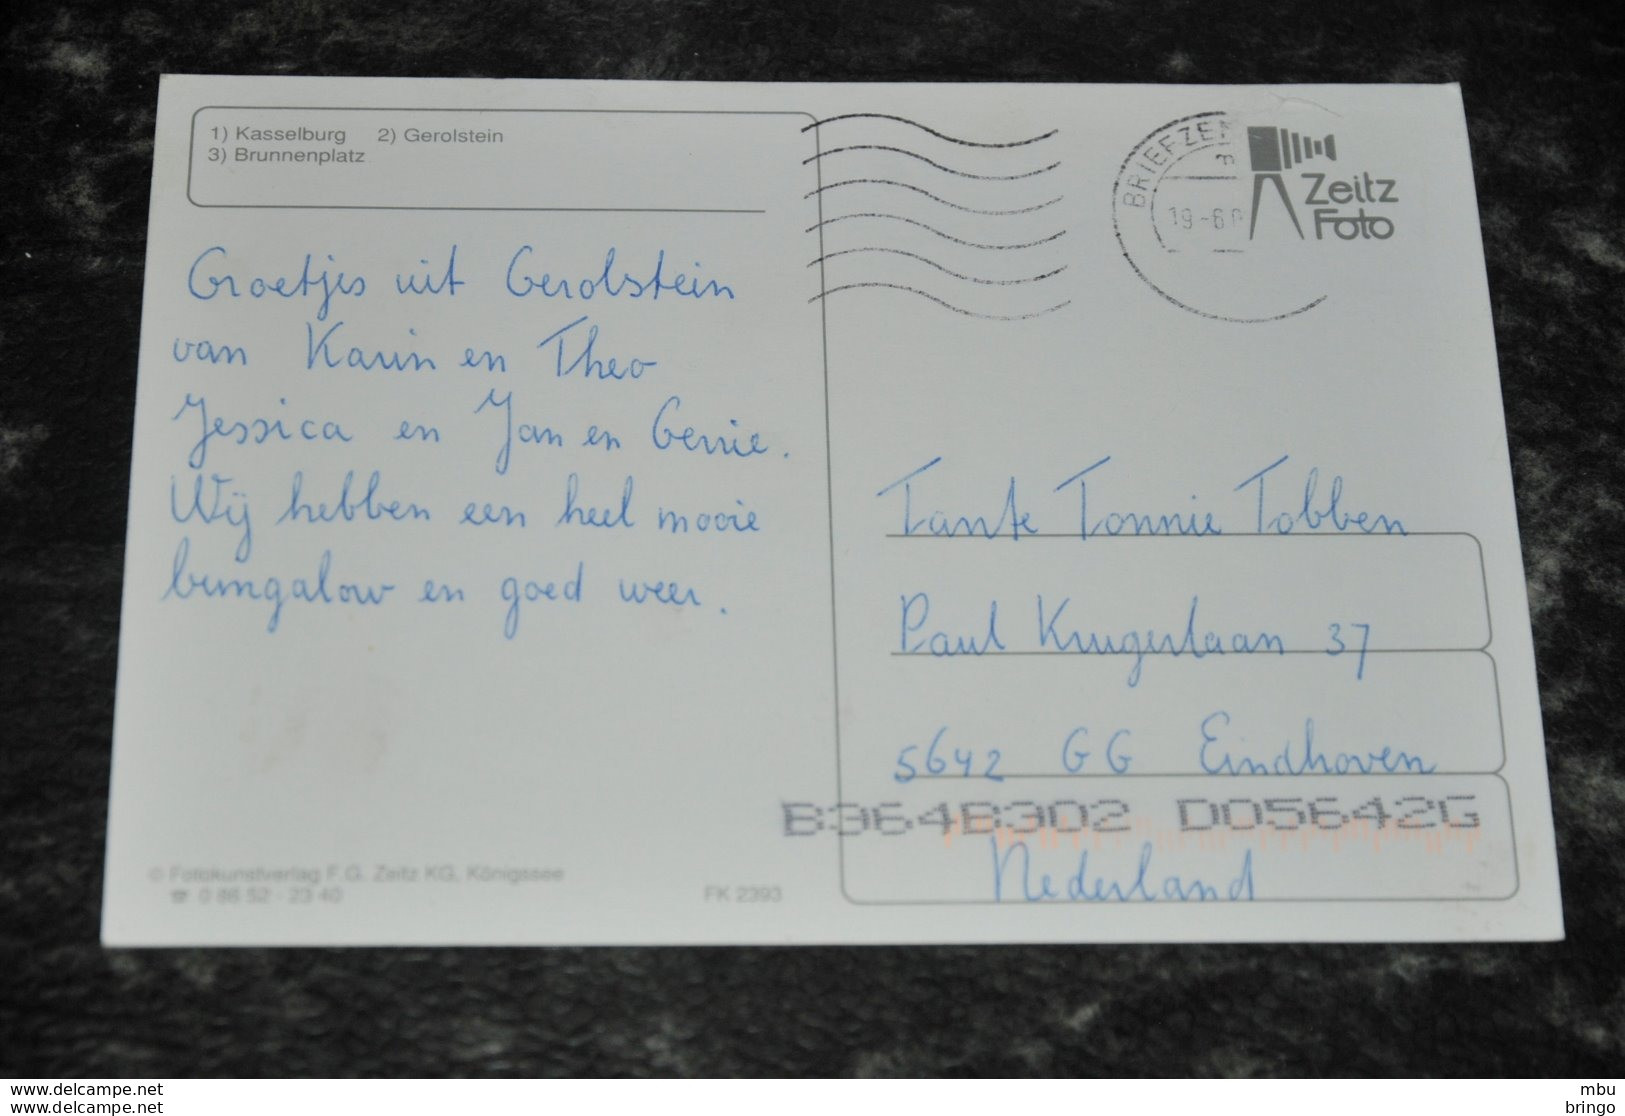 1) Kasselburg 2) Gerolstein
3) Brunnenplatz
Groetjes uit Gerolstein
van Karin en Theo
Jessica en Jan en Gerrie.
Wij hebben een heel mooie
bungalow en goed weer.
© Fotokunstverlag F.G. Zeitz KG, Königssee
☎ 0 86 52 - 23 40
FK 2393
BRIEFZE
19-6
Zeitz
Foto
Tante Tonnie Tobben
Paul Krugerlaan 37
5642 GG Eindhoven
B364B302 D05642G
Nederland
www.delcampe.net
www.delcampe.net
mbu
bringo